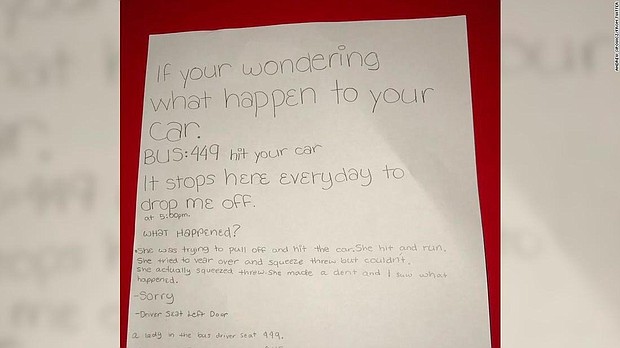 If your wondering
what happen to your
car.
BUS:449 hit your car
It stops here everyday to
drop me off.
at 5:00pm.
what Happened?
•She was trying to pull off and hit the car. She hit and run.
She tried to vear over and squeeze threw but couldnt.
She actually squeezed threw. She made a dent and I saw what
happend.
-Sorry
-Driver Seat Left Door
a lady in the bus driver seat 449.